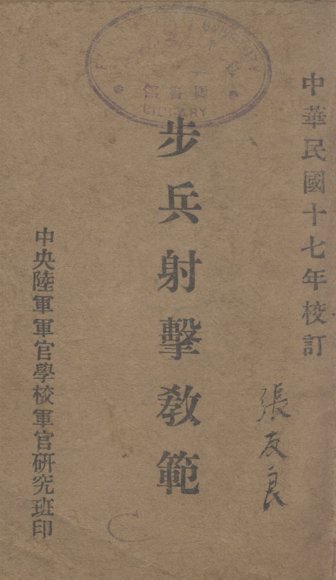 中華民國十七年校訂
張友良
步兵射擊教範
圖書館
LIBRARY
中央陸軍軍官學校軍官研究班印
C